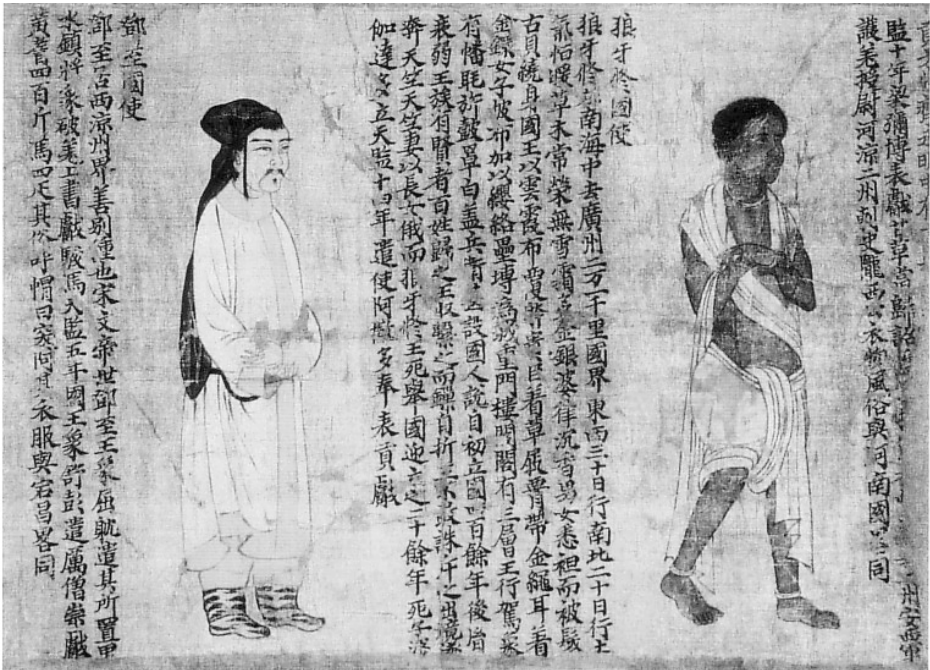 州安西軍
監十年梁彌博表獻甘草當歸詔
護羌授尉河涼二州刺史隴西公衣物風俗與河南國略同
狼牙脩國使
狼牙脩南海中去廣州二万一千里國界東西三十日行南北二十日行土
氣恒暖草木常榮無雪霜多金銀婆律沉香男女悉袒而被髮
古貝繞身國王以雲霞布覆臣着草屐貫帶金繩耳着
金鐶女子披布加以纓絡壘塼為城重門樓閣有三層王行駕象
有幡眊旌鼓罩白盖兵設國人說自初立國四百餘年後嗣
衰弱王族有賢者百姓歸之王收繫之而鏁自折
奔天竺天竺妻以長女俄而狼牙脩王死舉國迎立之二十餘年死子婆
伽達多立天監十四年遣使阿撤多奉表貢獻
鄧至國使
鄧至居西涼州界羌別種也宋文帝世鄧至王象屈躭遣其所置里
水鎮將象破羌上書獻駿馬天監五年國王象舒彭遣厲僧崇獻
黃耆四百斤馬四疋其俗呼帽曰突何其衣服與宕昌畧同